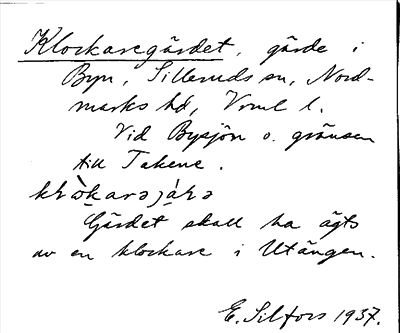 Klockaregärdet, gärde i
Byn, Silleruds sn, Nord-
marks hd, Vrml l.
Vid Bysjön o. gränsen
till Takene.
Gärdet skall ha ägts
av en klockare i Utängen.
E. Silfors 1937.